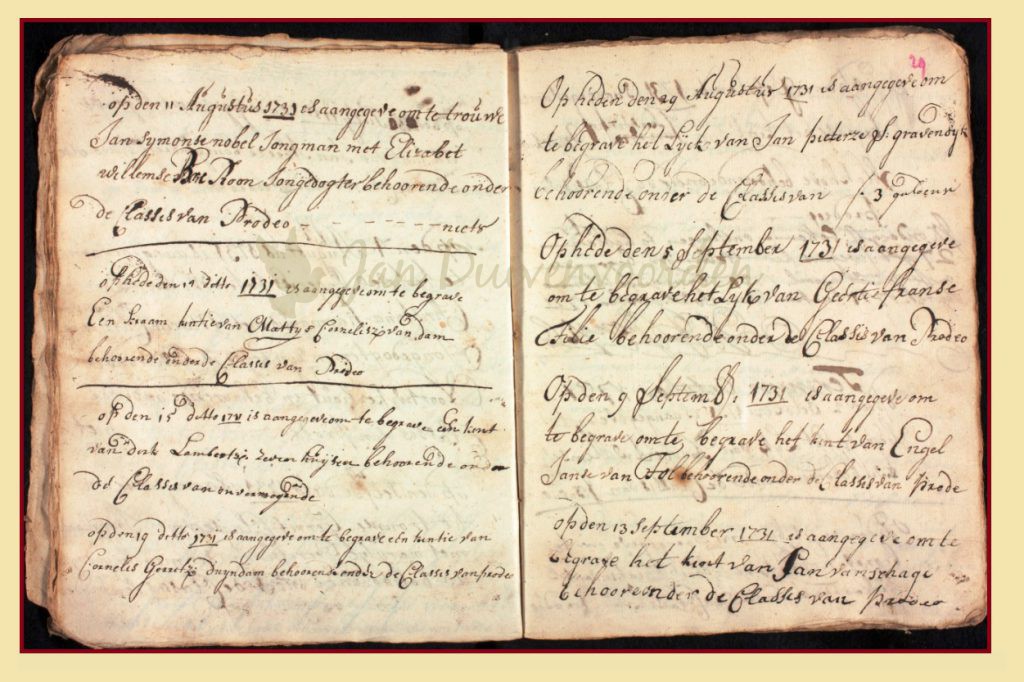 op den 11 Augustus 1731 is aangegeve om te trouwe
Jan symonse nobel Jongman met Elizabet
willemse Roon Jongedogter behoorende onder
de Classis van Prodeo - - - - - niets
op hede den 12 ditto 1731 is aangegeve om te begrave
Een kraam kintie van Mattys Cornelisz van dam
behoorende onder de Classis van Prodeo
op den 15 ditto 1731 is aangegeve om te begrave Een kint
van derk Lambertsz zevenhuijsen behoorende onder
de Classis van onvermogende
op den 19 ditto 1731 is aangegeve om te begrave een kintie van
Cornelis Gerretsz duyndam behoorende onder de Classis van prodeo
29
Op heden den 29 Augustus 1731 is aangegeve om
te begrave het Lyck van Jan pieterze S: gravendyk
behoorende onder de Classis van f 3 gulden
Op hede den 5 September 1731 is aangegeve
om te begrave het Lyk van Geertie franse
behoorende onder de Classis van Prodeo
Op den 9 Septemb: 1731 is aangegeve om
te begrave om te begrave het kint van Engel
Janse van Tol behoorende onder de Classis van prode
op den 13 September 1731 is aangegeve om te
begrave het kint van Jan van schage
behoorende onder de Classis van prodeo
Jan Duivenvoorden